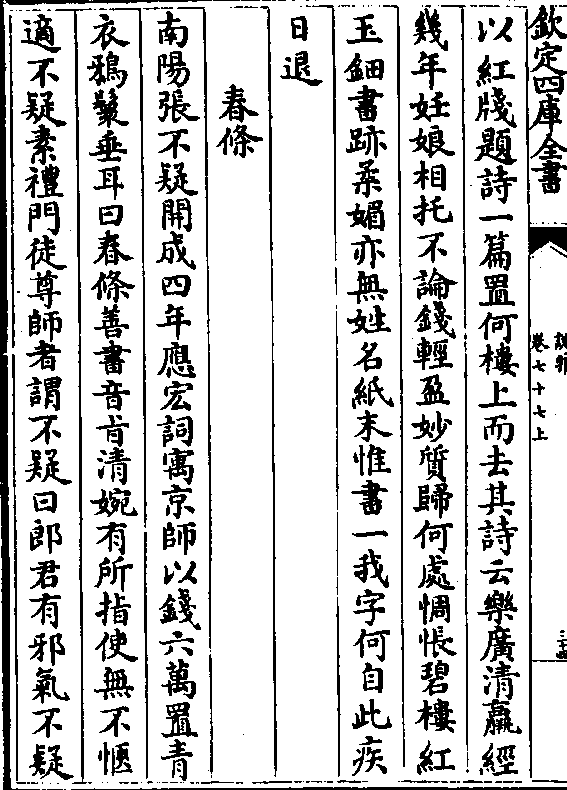 欽定四庫全書
說郛
卷七十七上
三十四
以紅牋題詩一篇置何樓上而去其詩云樂廣清羸經
幾年姙娘相托不論錢輕盈妙質歸何處惆悵碧樓紅
玉鈿書跡柔媚亦無姓名紙末惟書一我字何自此疾
日退
春條
南陽張不疑開成四年應宏詞寓京師以錢六萬置青
衣鴉鬟垂耳曰春條善書音旨清婉有所指使無不愜
適不疑素禮門徒尊師者謂不疑曰郎君有邪氣不疑